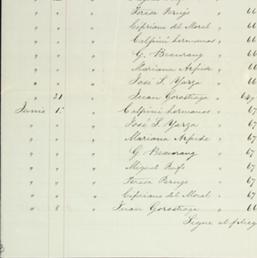 " " " Teresa Perujo " 66
" " " Cipriano del Moral " 66
" " " Calpini hermanos " 66
" " " G. Beaurang " 66
" " " Mariano Arpide " 66
" " " José S. Yarza " 66
" 21 " Juan Gorostiaga "
Junio 1º " Calpini hermanos " 67
" " " José S. Yarza " 67
" " " Mariano Arpide " 67
" " " G. Beaurang " 67
" " " Miguel " 67
" " " Teresa Perujo " 67
" " " Cipriano del Moral " 67
" 8 " Juan Gorostiaga " 66
Sigue al